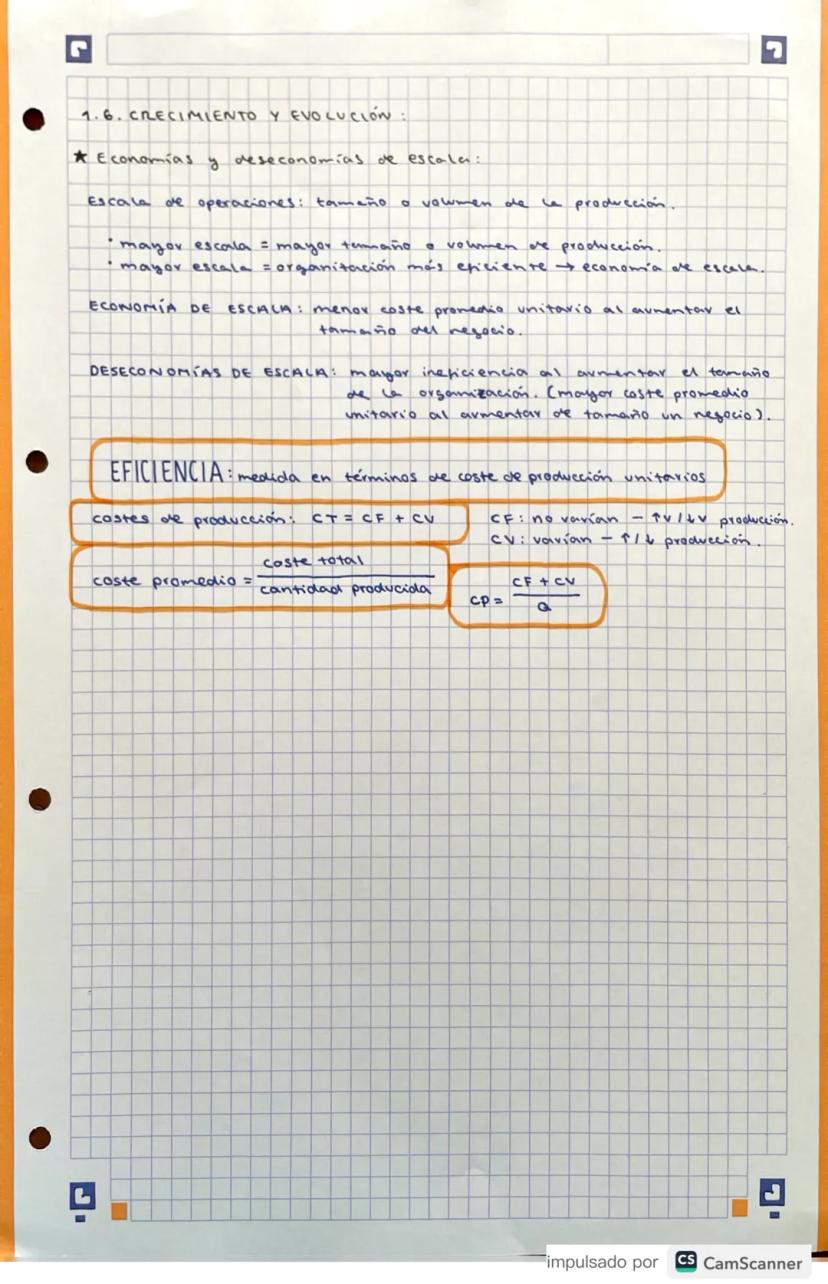 1.6. CRECIMIENTO Y EVOLUCIÓN:
★ Economías y deseconomías de escala:
Escala de operaciones: tamaño o volumen de la producción.
· mayor escala = mayor tamaño o volumen de producción.
· mayor escala = organización más eficiente → economía de escala.
ECONOMÍA DE ESCALA: menor coste promedio unitario al aumentar el
tamaño del negocio.
DESECONOMÍAS DE ESCALA: mayor ineficiencia al aumentar el tamaño
de la organización. (mayor coste promedio
unitario al aumentar de tamaño un negocio).
EFICIENCIA: medida en términos de coste de producción unitarios
costes de producción: CT = CF + CV
CF: no varían - ↑v/↓v producción.
CV: varían - ↑/↓ producción.
coste promedio = coste total
cantidad producida
CP = CF + CV
Q
impulsado por CS CamScanner